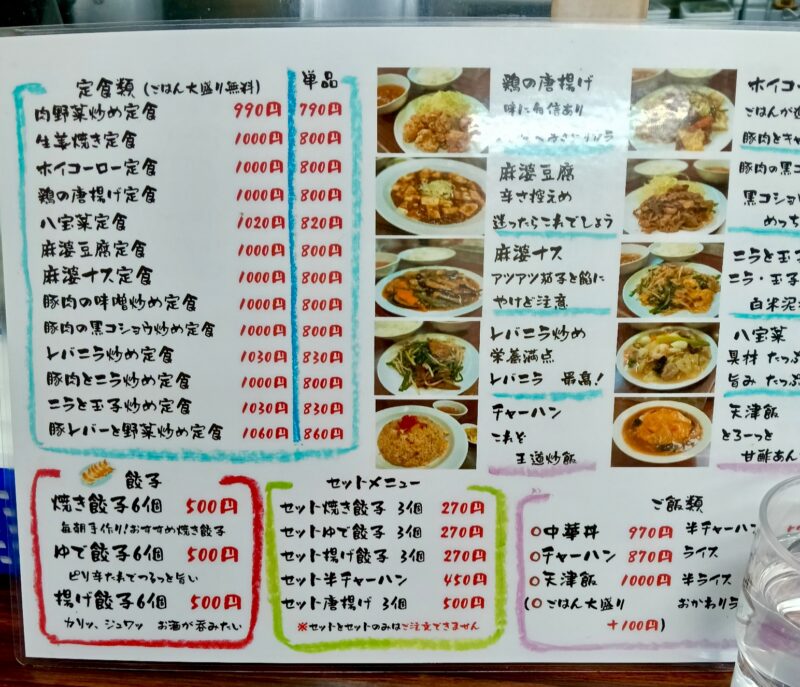 定食類 (ごはん大盛り無料) 単品
肉野菜炒め定食 990円 790円
生姜焼き定食 1000円 800円
ホイコーロー定食 1000円 800円
鶏の唐揚げ定食 1000円 800円
八宝菜定食 1020円 820円
麻婆豆腐定食 1000円 800円
麻婆ナス定食 1000円 800円
豚肉の味噌炒め定食 1000円 800円
豚肉の黒コショウ炒め定食 1000円 800円
レバニラ炒め定食 1030円 830円
豚肉とニラ炒め定食 1000円 800円
ニラと玉子炒め定食 1030円 830円
豚レバーと野菜炒め定食 1060円 860円
鶏の唐揚げ
味に自信あり
麻婆豆腐
辛さ控えめ
迷ったらこれでしょう
麻婆ナス
アツアツ茄子と餡に
やけど注意
レバニラ炒め
栄養満点
レバニラ 最高!
チャーハン
これぞ
王道炒飯
ホイコー
ごはんが
豚肉とキャ
豚肉の黒コ
黒コショウ
めっち
ニラと玉子
ニラ・玉子
白米泥
八宝菜
具材 たっぷ
旨み たっぷ
天津飯
とろーっと
甘酢あん
餃子
焼き餃子6個 500円
毎朝手作り!おすすめ焼き餃子
ゆで餃子6個 500円
ピリ辛たれでつるっと旨い
揚げ餃子6個 500円
カリッ、ジュワッ お酒が呑みたい
セットメニュー
セット焼き餃子 3個 270円
セットゆで餃子 3個 270円
セット揚げ餃子 3個 270円
セット半チャーハン 450円
セット唐揚げ 3個 500円
※セットとセットのみはご注文できません
ご飯類
○中華丼 970円 半チャーハン
○チャーハン 870円 ライス
○天津飯 1000円 半ライス
(○ごはん大盛り おかわりラ
+100円)